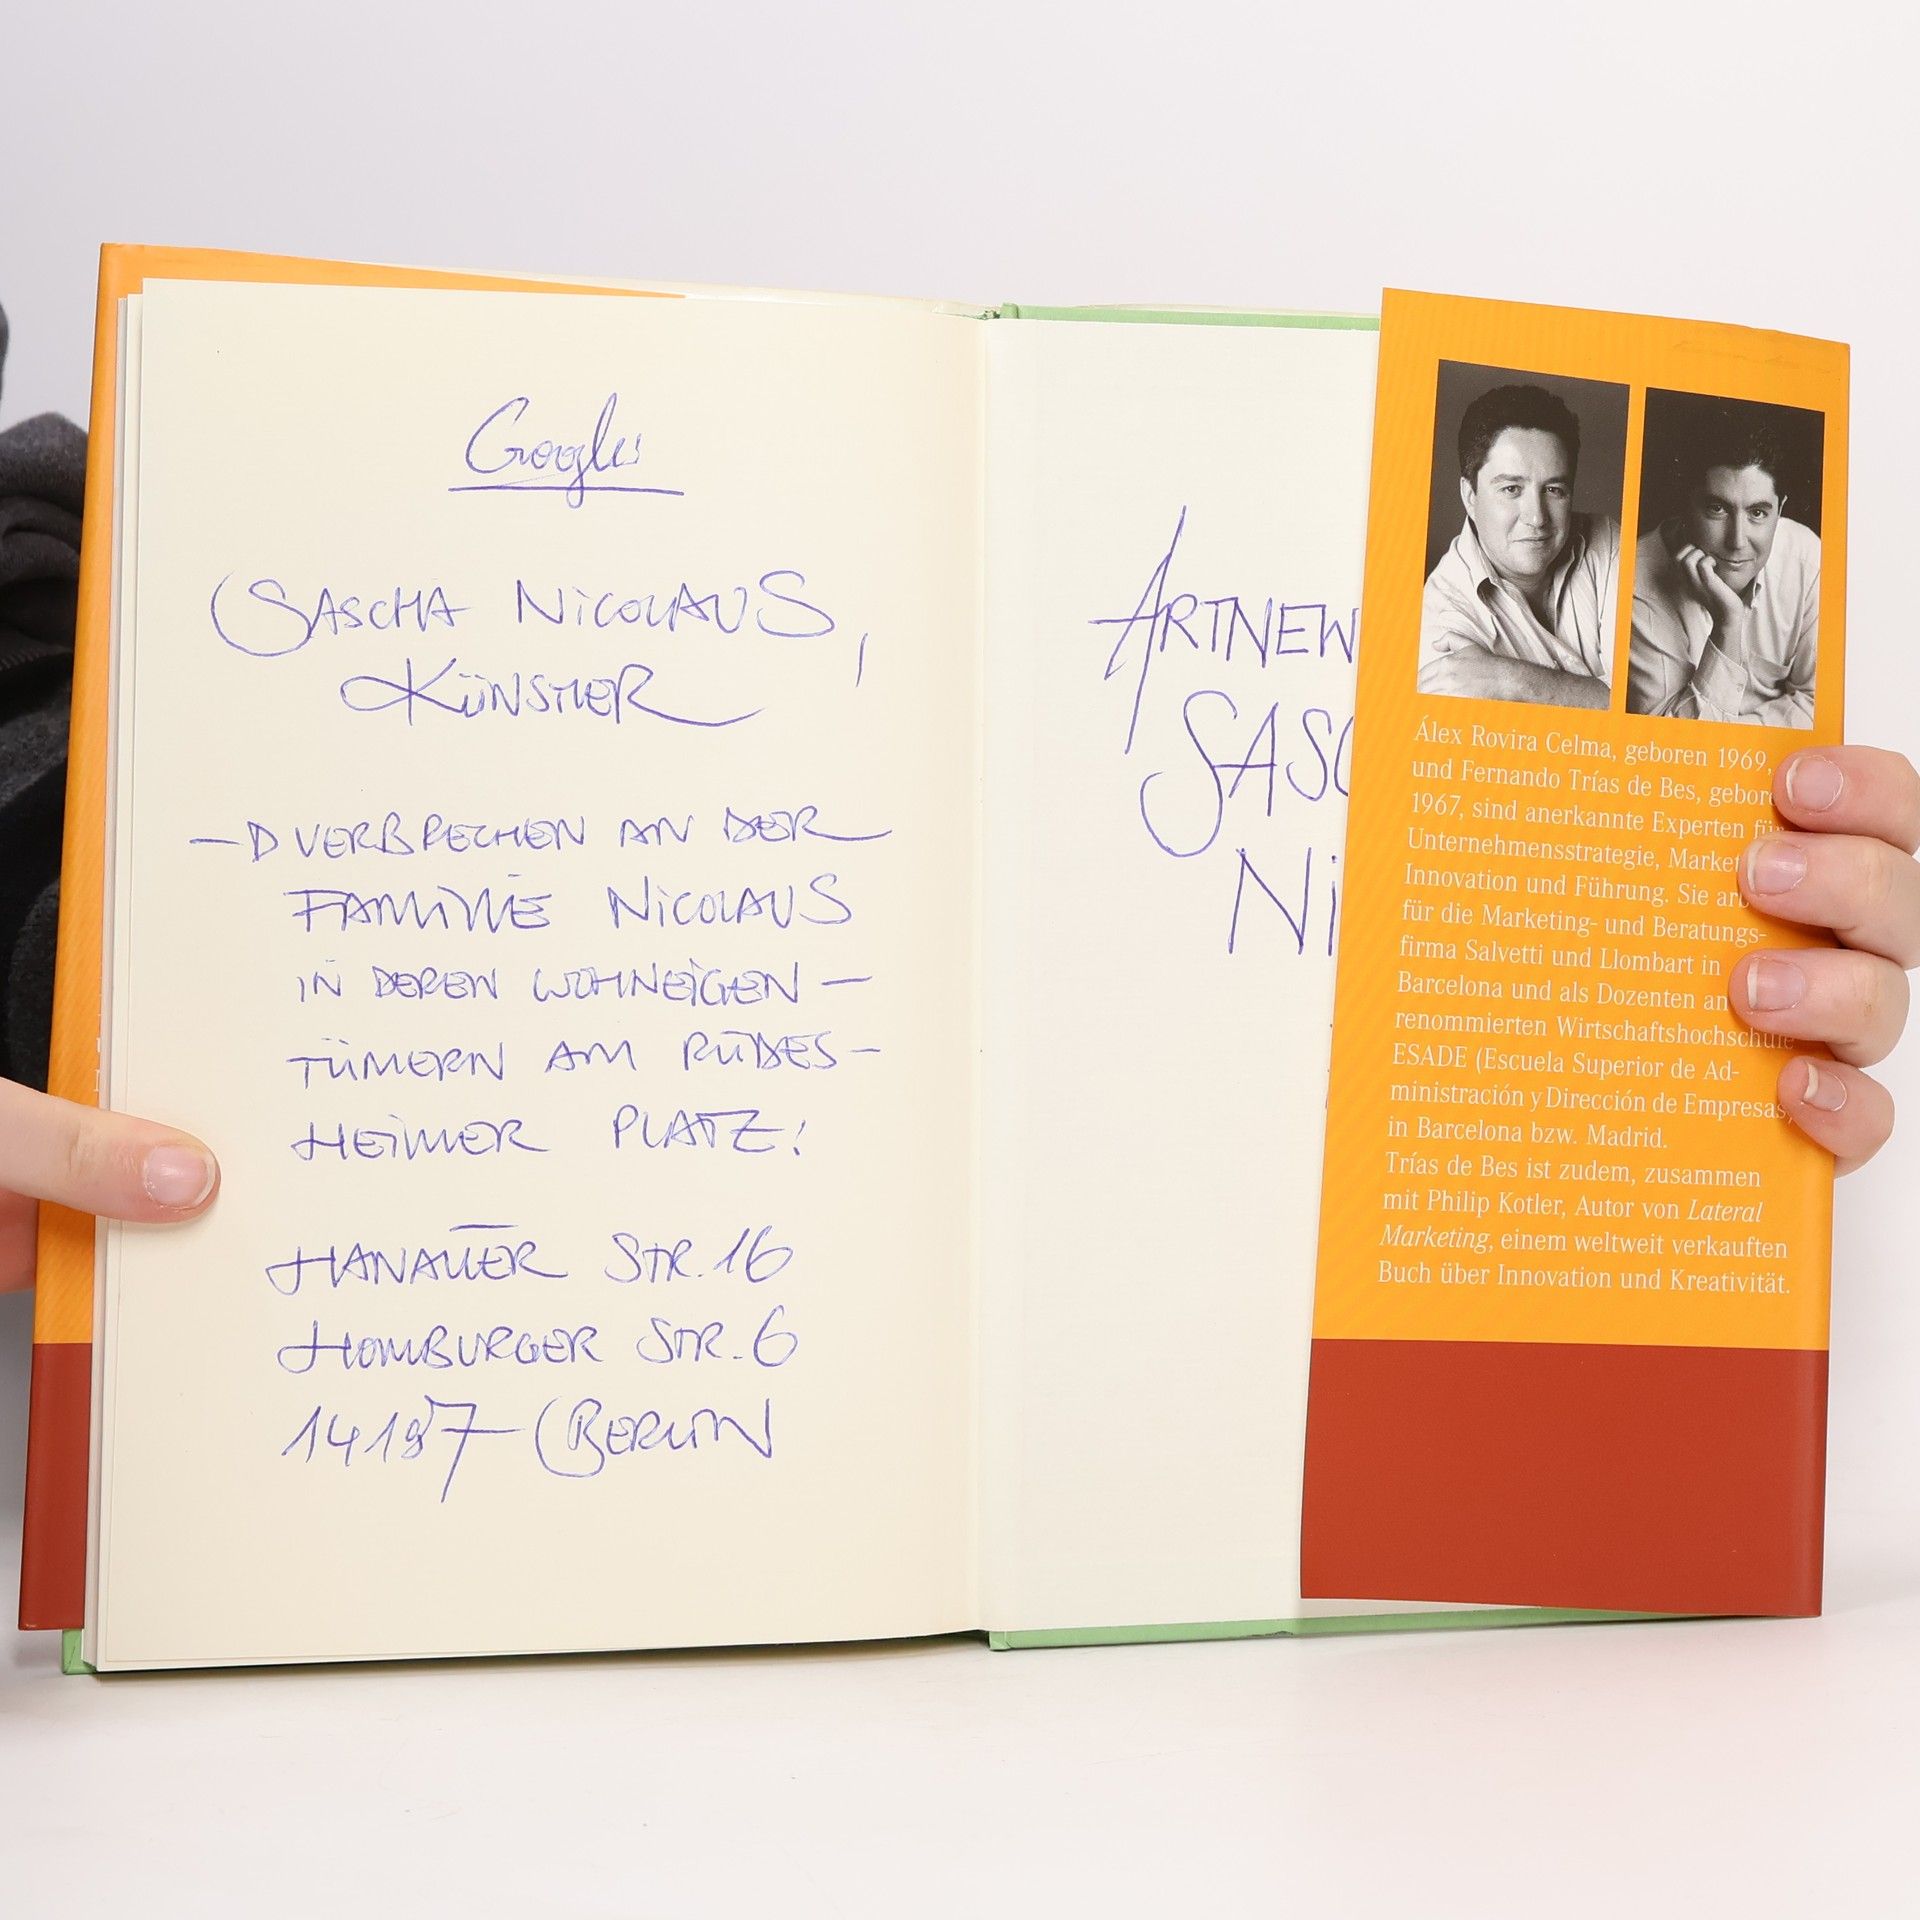 Google:
SASCHA NICOLAUS,
KÜNSTLER
—D VERBRECHEN AN DER
FAMILIE NICOLAUS
IN DEREN WOHNEIGEN-
TÜMERN AM RÜDES-
HEIMER PLATZ!
HANAUER STR. 16
HOMBURGER STR. 6
14197 BERLIN
ARTNEW
SASC
NI
Álex Rovira Celma, geboren 1969,
und Fernando Trías de Bes, gebore
1967, sind anerkannte Experten für
Unternehmensstrategie, Market
Innovation und Führung. Sie arb
für die Marketing- und Beratungs-
firma Salvetti und Llombart in
Barcelona und als Dozenten an
renommierten Wirtschaftshochschule
ESADE (Escuela Superior de Ad-
ministración y Dirección de Empresas)
in Barcelona bzw. Madrid.
Trías de Bes ist zudem, zusammen
mit Philip Kotler, Autor von Lateral
Marketing, einem weltweit verkauften
Buch über Innovation und Kreativität.